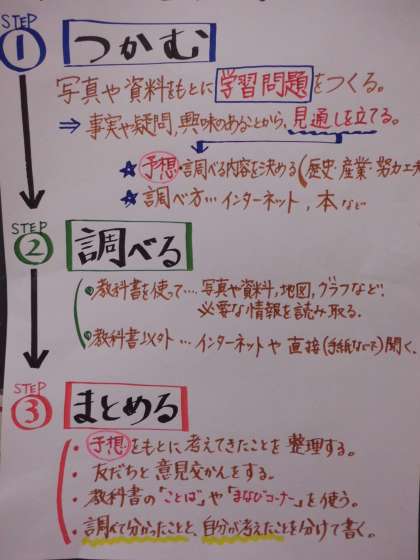 STEP
① つかむ
写真や資料をもとに学習問題をつくる。
⇒ 事実や疑問,興味のあることから,見通しを立てる。
★ 予想・調べる内容を決める(歴史・産業・努力工夫
★ 調べ方…インターネット,本など
STEP
② 調べる
・教科書を使って…写真や資料,地図,グラフなど.
必要な情報を読み取る.
・教科書以外…インターネットや直接(手紙などで)聞く.
STEP
③ まとめる
・予想をもとに考えてきたことを整理する。
・友だちと意見交かんをする。
・教科書の「ことば」や「まなびコーナー」を使う。
・調べて分かったことと、自分が考えたことを分けて書く。